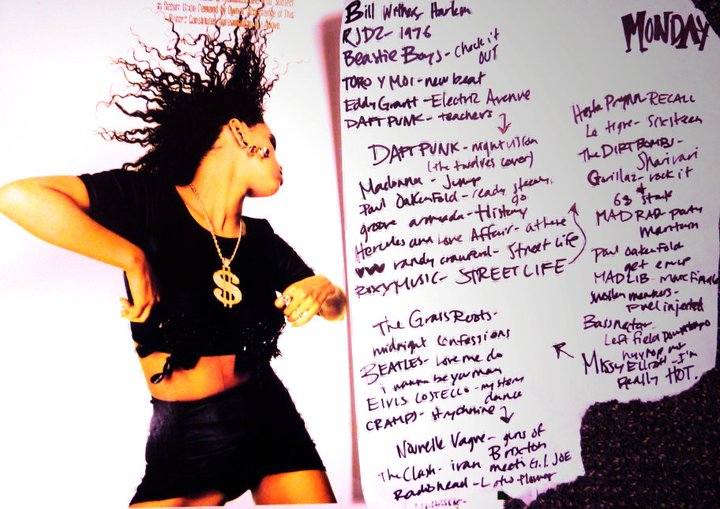 Bill Withers Harlem
RJD2 - 1976
Beastie Boys - Check it
OUT
TORO Y MOI - new beat
Eddy Grant - Electric Avenue
DAFT PUNK - teachers
DAFT PUNK - night vision
(the twelves cover)
Madonna - Jump
Paul Oakenfold - ready steady
go
groove armada - History
Hercules and Love Affair - athene
randy crawford - Street Life
ROXY MUSIC - STREET LIFE
The Grass Roots -
midnight confessions
BEATLES - Love me do
i wanna be your man
ELVIS COSTELLO - mystery
dance
CRAMPS - strychnine
Nouvelle Vague - guns of
Brixton
The Clash - ivan meets G.I. JOE
Radiohead - Lotus Flower
MONDAY
Hesta Prynn - RECALL
Le tigre - Sixteen
The DIRTBOMBS -
Sharivari
Gorillaz - rock it
68 & state
MAD RAD - party
marathon
Paul oakenfold
get em up
MADLIB -
swollen members -
fuel injected
Bassnectar
Left field
hip hop
Missy Elliott - I'm
Really HOT.